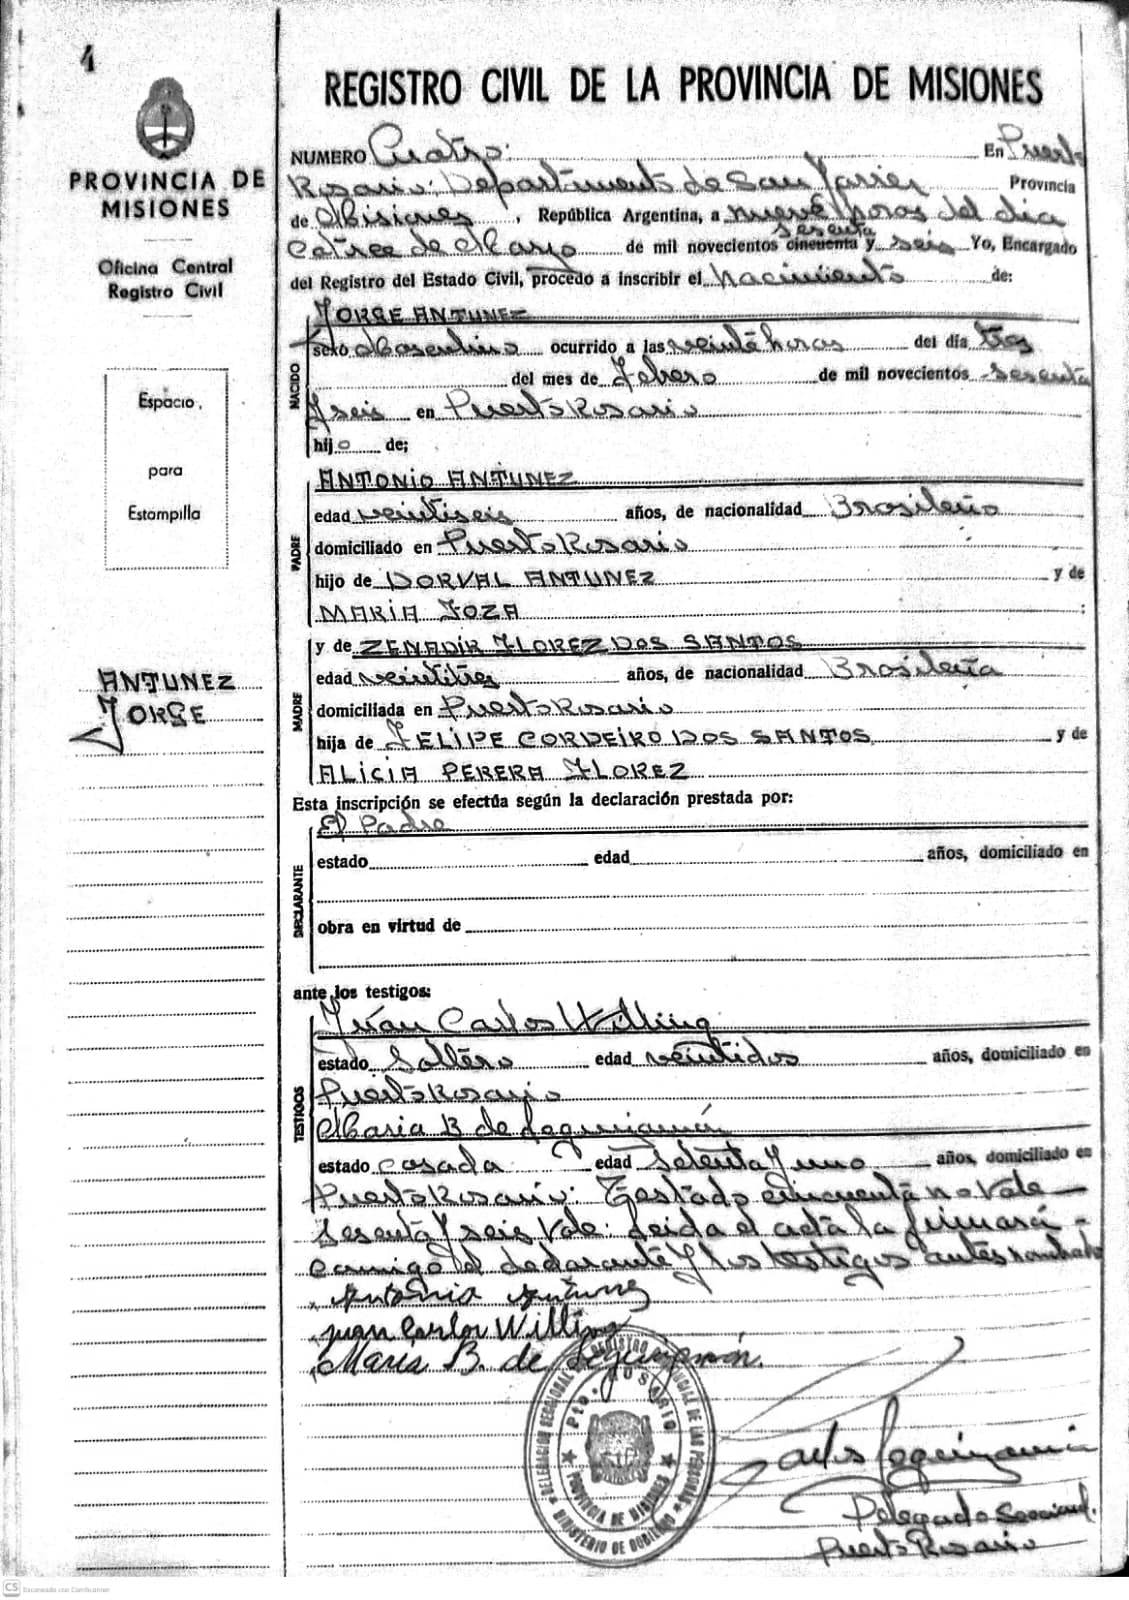 1
REGISTRO CIVIL DE LA PROVINCIA DE MISIONES
PROVINCIA DE
MISIONES
Oficina Central
Registro Civil
Espacio
para
Estampilla
ANTUNEZ
JORGE
NUMERO Cuatro: En Puerto
Rosario: Departamento de San Javier Provincia
de Misiones, República Argentina, a nueve horas del día
sesenta
catorce de Mayo de mil novecientos cincuenta y seis Yo, Encargado
del Registro del Estado Civil, procedo a inscribir el Nacimiento de:
NACIDO
JORGE ANTUNEZ
sexo Masculino ocurrido a las veinte horas del día tres
del mes de Febrero de mil novecientos sesenta
y seis en Puerto Rosario
hijo de;
PADRE
ANTONIO ANTUNEZ
edad veintiseis años, de nacionalidad Brasileña
domiciliado en Puerto Rosario
hijo de DORVAL ANTUNEZ y de
MARIA JOZA
MADRE
y de ZENADIR FLOREZ DOS SANTOS
edad veintitres años, de nacionalidad Brasileña
domiciliada en Puerto Rosario
hija de FELIPE CORDEIRO DOS SANTOS y de
ALICIA PERERA FLOREZ
Esta inscripción se efectúa según la declaración prestada por:
DECLARANTE
El Padre
estado edad años, domiciliado en
obra en virtud de
ante los testigos:
TESTIGOS
Juan Carlos Willing
estado Soltero edad veintidos años, domiciliado en
Puerto Rosario
Maria B de Leguizamón
estado casada edad setenta y uno años, domiciliado en
Puerto Rosario: Testado cincuenta no vale
sesenta y seis vale: leida el acta la firmará
comigo el declarante y los testigos antes nombrado
Antonio Antunez
Juan Carlos Willing
Maria B. de Leguizamón.
DELEGACION SECCIONAL REGISTRO PROVINCIAL DE LAS PERSONAS
Pto. ROSARIO
PROVINCIA DE MISIONES
MINISTERIO DE GOBIERNO
Leguizamon
Delegado Seccional.
Puerto Rosario
CS Escaneado con CamScanner